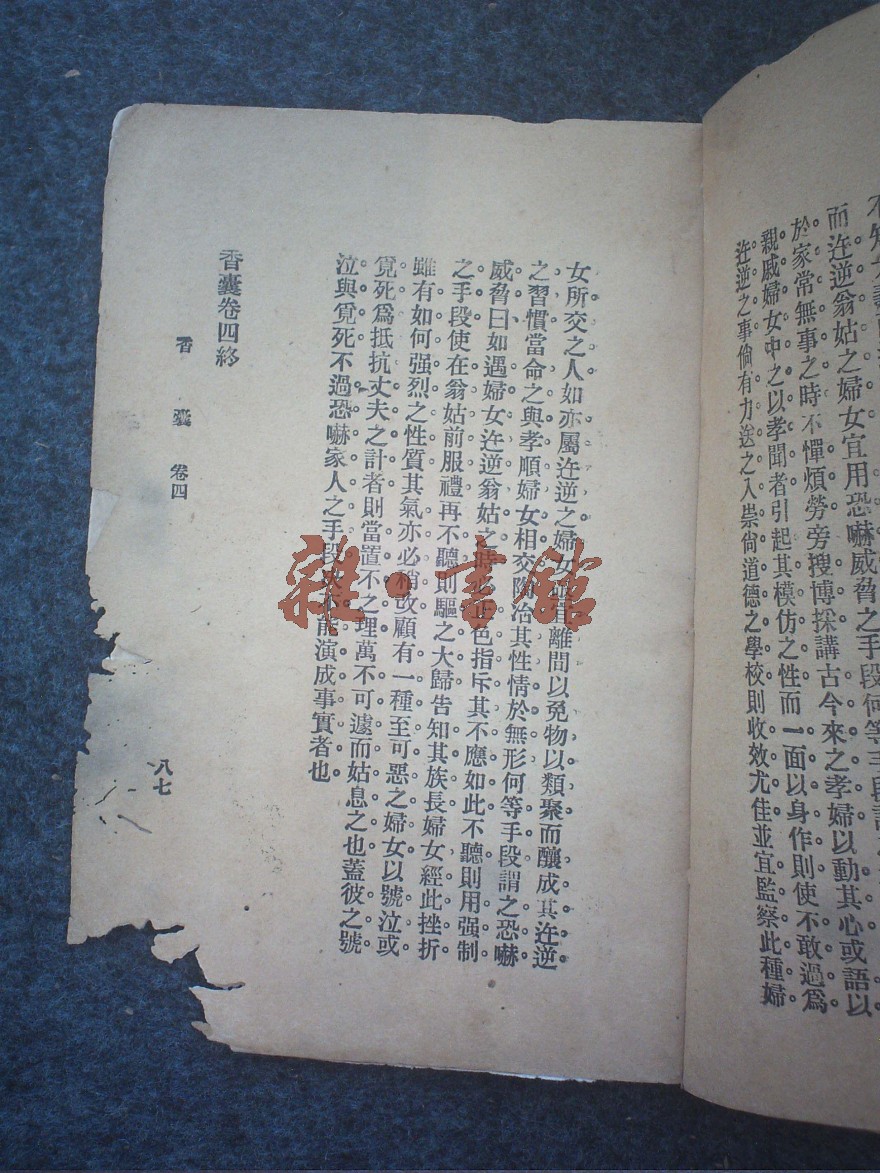 而迕逆翁姑之婦女宜用恐嚇威脅之手段何等手段
於家常無事之時不憚煩勞旁搜博採講古今來之孝婦以動其心或語以
親戚婦女中之以孝聞者引起其模仿之性而一面以身作則使不敢過爲
迕逆之事倘有力送之入崇尙道德之學校則收效尤佳並宜監察此種婦
女所交之人如亦屬迕逆之婦女 離間以免物以類聚而釀成其迕逆
之習慣當命之與孝順婦女相交陶冶其性情於無形何等手段謂之恐嚇
威脅曰如遇婦女迕逆翁姑之時必正色指斥其不應如此不聽則用强制
之手段使在翁姑前服禮再不聽則驅之大歸告知其族長婦女經此挫折
雖有如何强烈之性質其氣亦必稍改顧有一種至可惡之婦女以號泣或
覓死爲抵抗丈夫之計者則當置不之理萬不可遽而姑息之也蓋彼之號
泣與覓死不過恐嚇家人之手段 能演成事實者也
香囊卷四終
香囊 卷四
八七
雜·書館